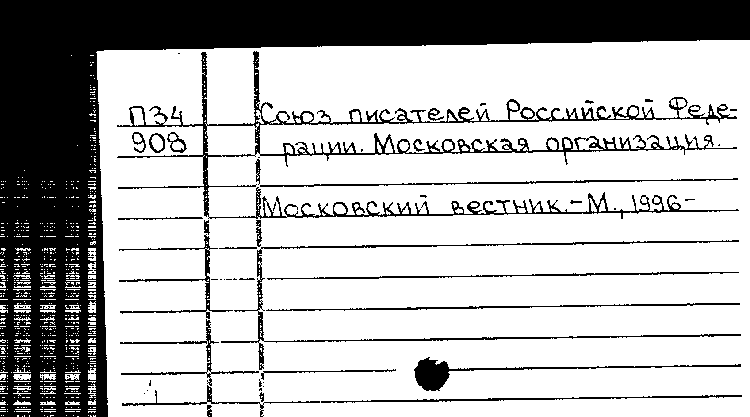 П34 Союз писателей Российской Феде-
908 рации. Московская организация.
Московский вестник.-М., 1996-